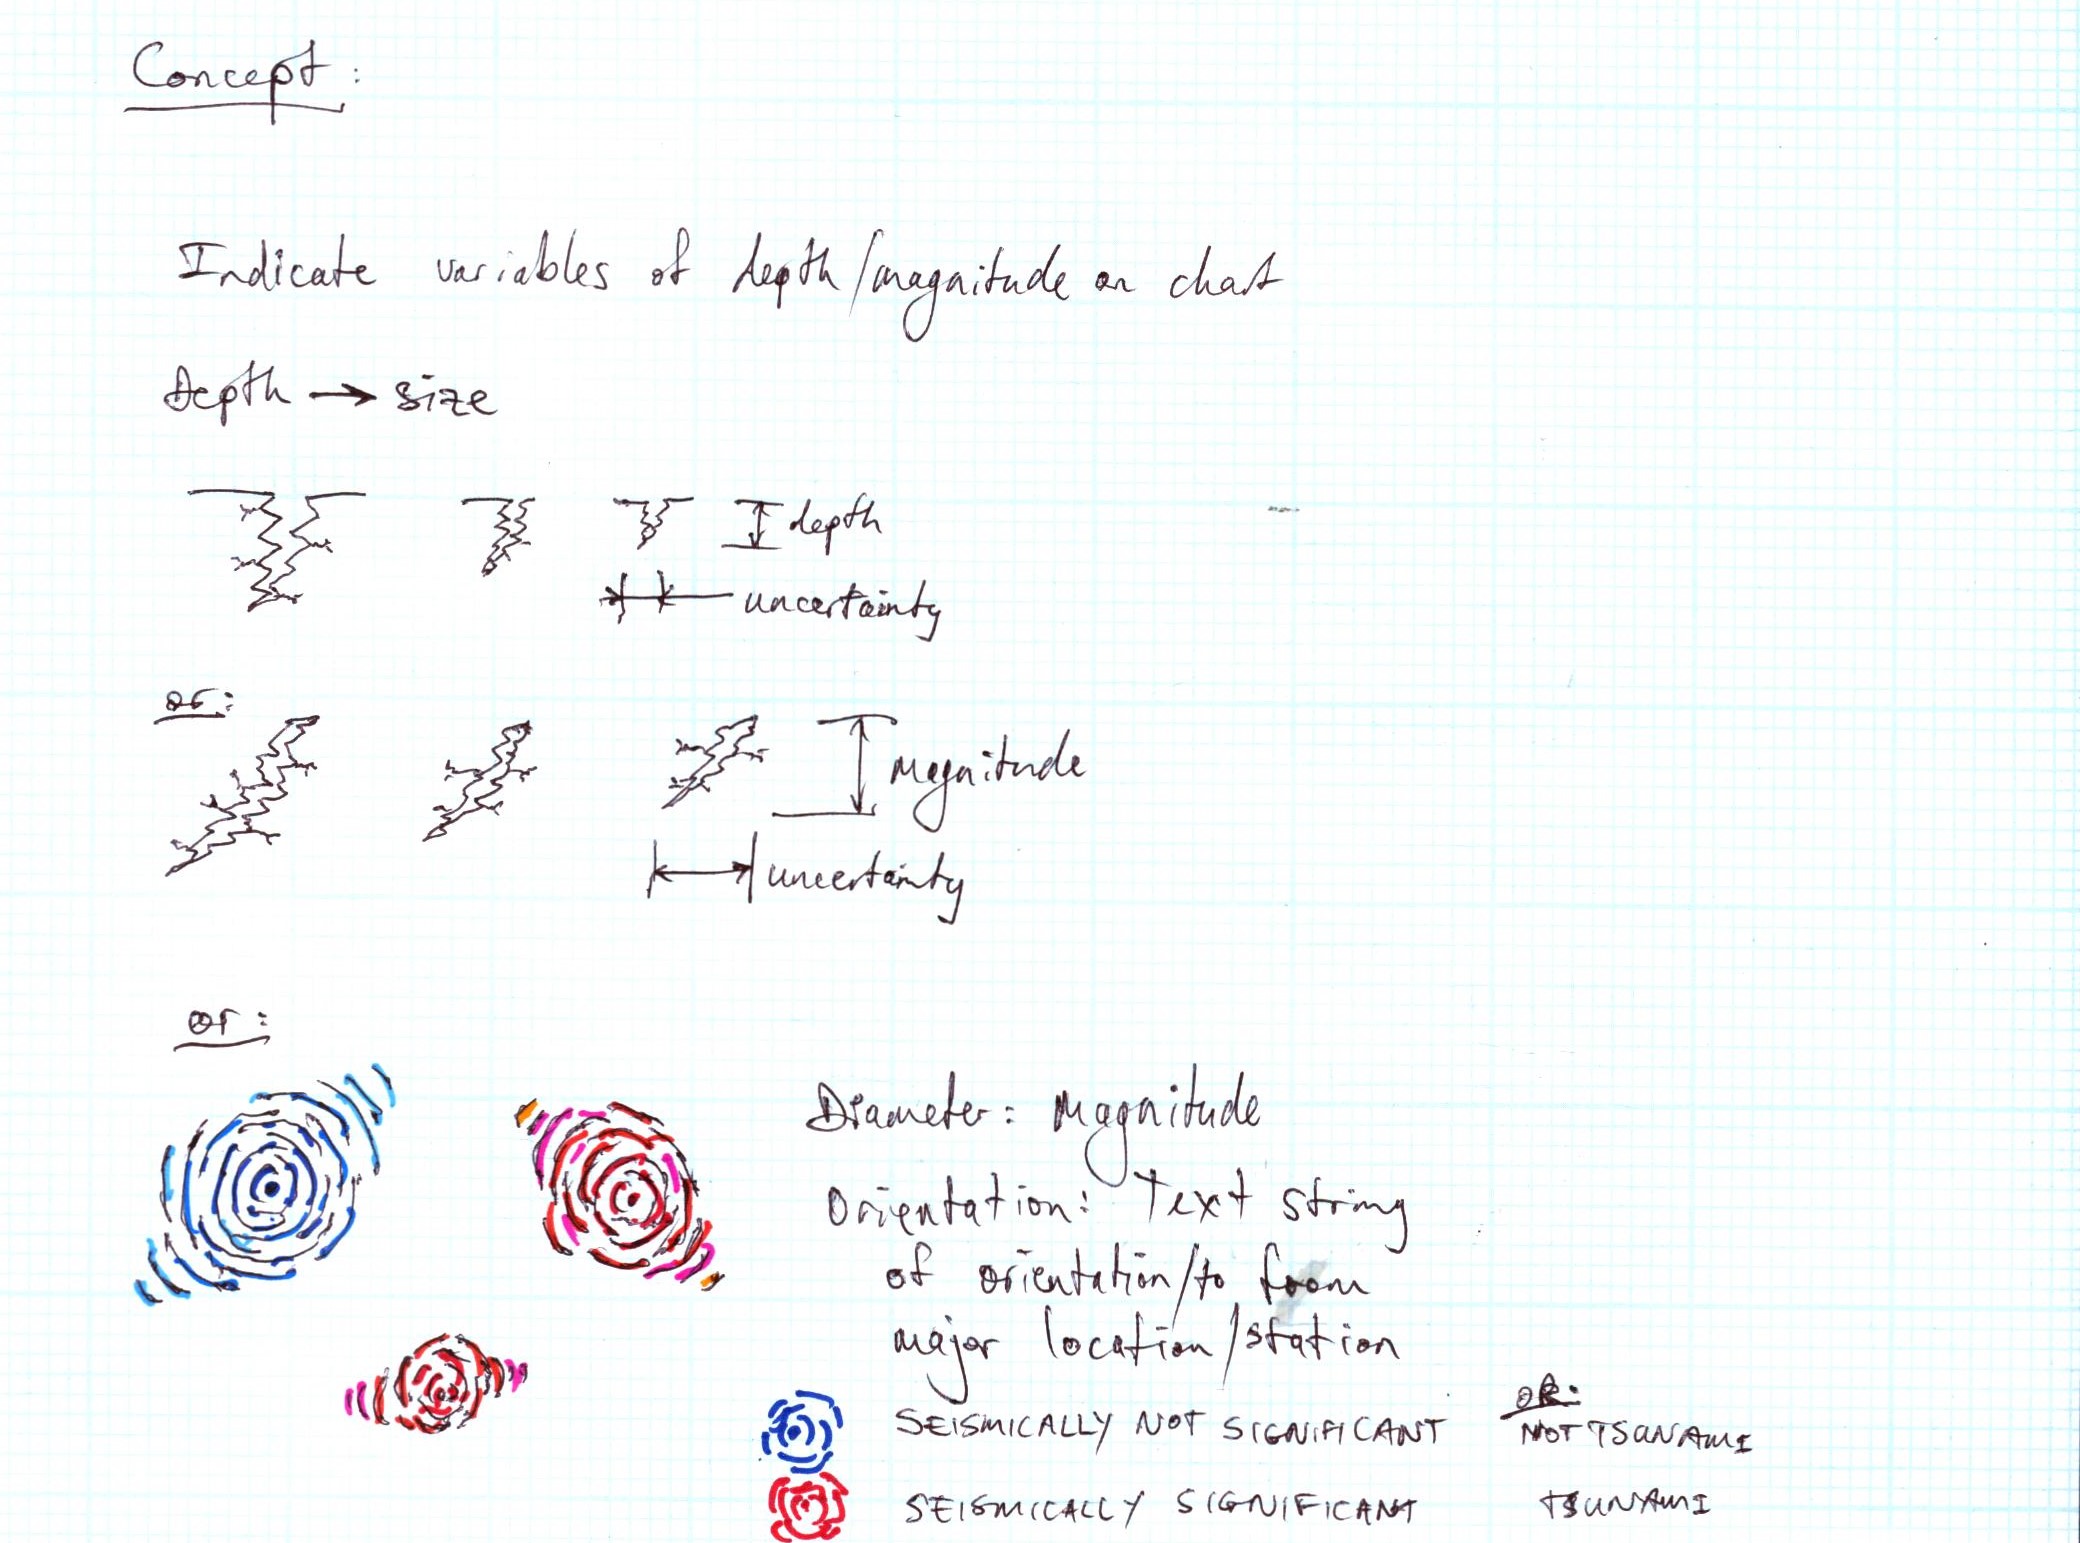 Concept:
Indicate variables of depth/magnitude on chart
Depth → size
depth
uncertainty
or:
Magnitude
uncertainty
or:
Diameter: Magnitude
Orientation: Text string
of orientation/to from
major location/station
SEISMICALLY NOT SIGNIFICANT OR: NOT TSUNAMI
SEISMICALLY SIGNIFICANT TSUNAMI